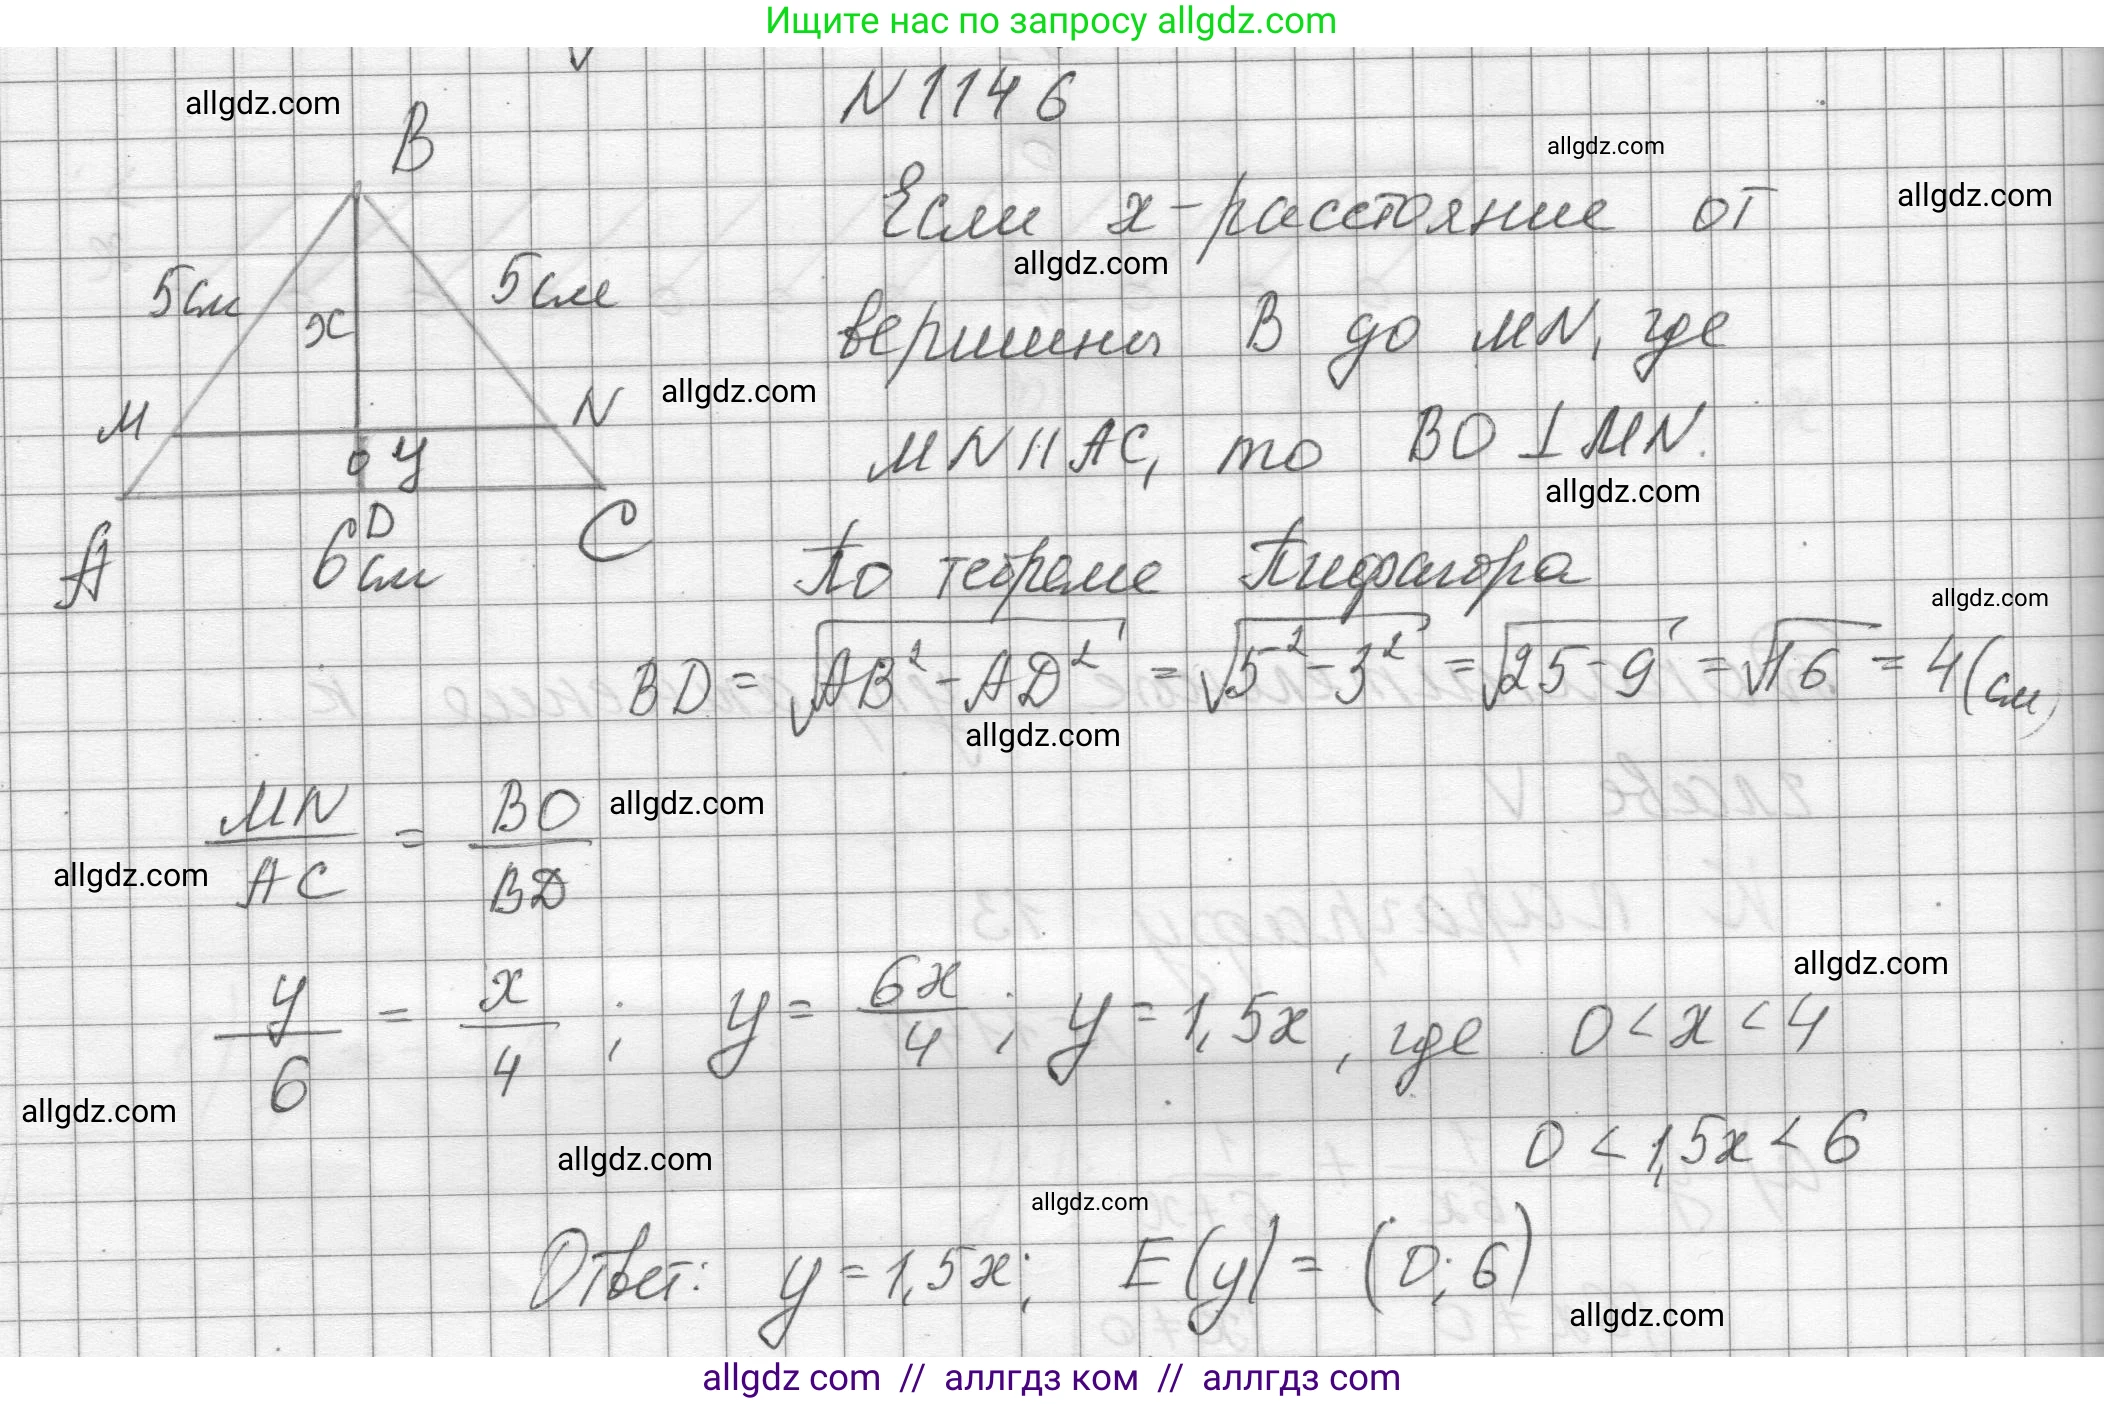 Ищите нас по запросу allgdz.com
N 1146
allgdz.com
B
allgdz.com
Если x - расстояние от
allgdz.com
allgdz.com
5см
5см
x
вершины B до MN, где
M
N
allgdz.com
MN || AC, то BO ⊥ MN.
O
y
allgdz.com
A
D
C
6 см
По теореме Пифагора
allgdz.com
BD = √(AB² - AD²) = √(5² - 3²) = √(25 - 9) = √16 = 4 (см)
allgdz.com
MN/AC = BO/BD
allgdz.com
allgdz.com
allgdz.com
y/6 = x/4 ; y = 6x/4 ; y = 1,5x , где 0 < x < 4
allgdz.com
0 < 1,5x < 6
allgdz.com
allgdz.com
Ответ: y = 1,5x; E(y) = (0; 6)
allgdz.com
allgdz com // аллгдз ком // аллгдз com